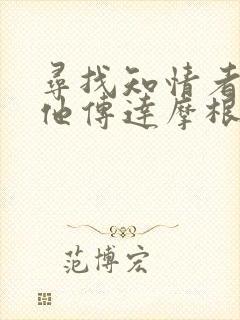 尋找知情者
他傳達摩根
范博宏